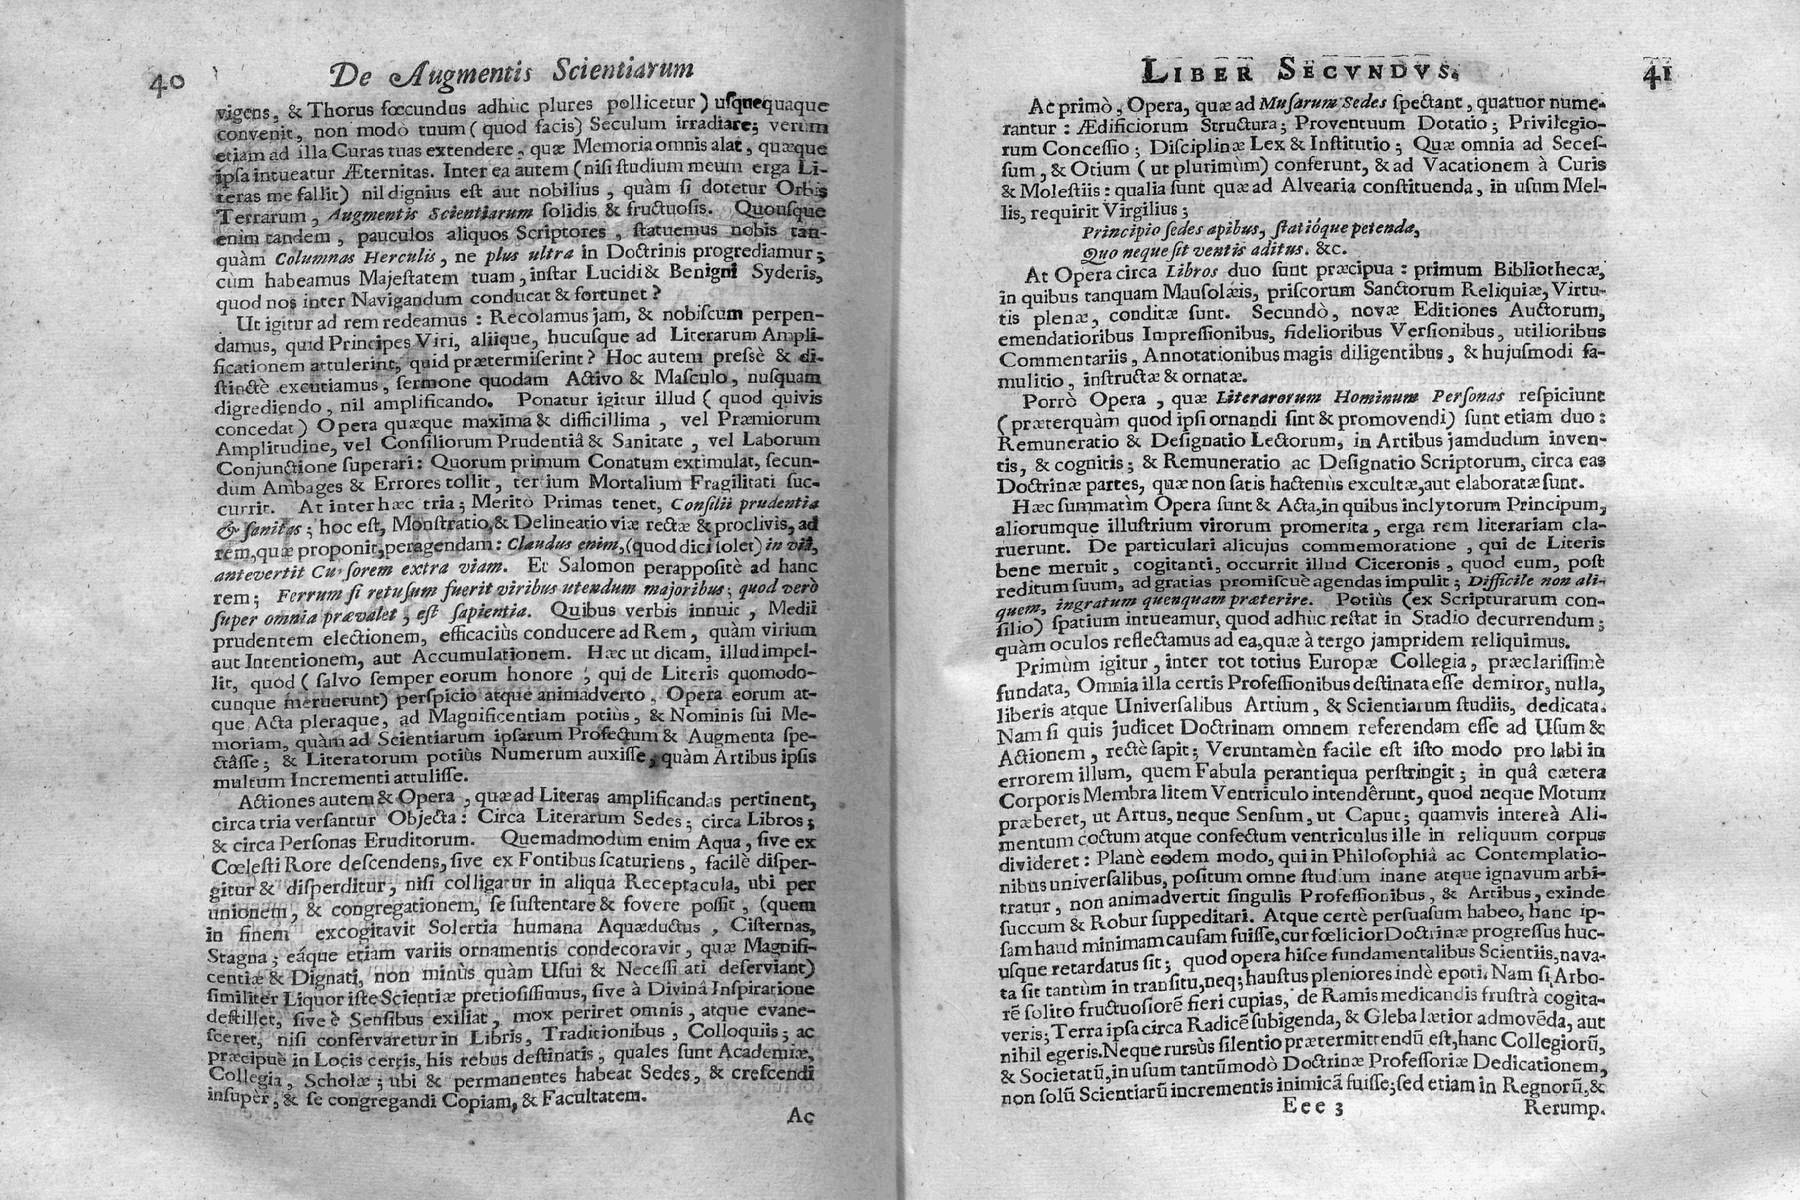 40 De Augmentis Scientiarum
vigens, & Thorus fœcundus adhuc plures pollicetur) uſquequaque
convenit, non modò tuum (quod facis) Seculum irradiare; verùm
etiam ad illa Curas tuas extendere, quæ Memoria omnis alat, quæque
ipſa intueatur Æternitas. Inter ea autem (niſi ſtudium meum erga Li-
teras me fallit) nil dignius eſt aut nobilius, quàm ſi dotetur Orbis
Terrarum, Augmentis Scientiarum ſolidis & fructuoſis. Quouſque
enim tandem, pauculos aliquos Scriptores, ſtatuemus nobis tan-
quàm Columnas Herculis, ne plus ultra in Doctrinis progrediamur;
cùm habeamus Majeſtatem tuam, inſtar Lucidi & Benigni Syderis,
quod nos inter Navigandum conducat & fortunet?
Ut igitur ad rem redeamus: Recolamus jam, & nobiſcum perpen-
damus, quid Principes Viri, aliique, hucuſque ad Literarum Ampli-
ficationem attulerint, quid prætermiſerint? Hoc autem preſsè & di-
ſtinctè excutiamus, ſermone quodam Activo & Maſculo, nuſquam
digrediendo, nil amplificando. Ponatur igitur illud (quod quivis
concedat) Opera quæque maxima & difficillima, vel Præmiorum
Amplitudine, vel Conſiliorum Prudentiâ & Sanitate, vel Laborum
Conjunctione ſuperari: Quorum primum Conatum extimulat, ſecun-
dum Ambages & Errores tollit, tertium Mortalium Fragilitati ſuc-
currit. At inter hæc tria; Meritò Primas tenet, Conſilii prudentia
& ſanitas; hoc eſt, Monſtratio & Delineatio viæ rectæ & proclivis, ad
rem, quæ proponit, peragendam: Claudus enim, (quod dici ſolet) in viâ,
antevertit Curſorem extra viam. Et Salomon perappoſitè ad hanc
rem; Ferrum ſi retuſum fuerit viribus utendum majoribus; quod verò
ſuper omnia prævalet, eſt ſapientia. Quibus verbis innuit, Medii
prudentem electionem, efficaciùs conducere ad Rem, quàm virium
aut Intentionem, aut Accumulationem. Hæc ut dicam, illud impel-
lit, quòd (ſalvo ſemper eorum honore, qui de Literis quomodo-
cunque meruerunt) perſpicio atque animadverto, Opera eorum at-
que Acta pleraque, ad Magnificentiam potiùs, & Nominis ſui Me-
moriam, quàm ad Scientiarum ipſarum Profectum & Augmenta ſpe-
ctâſſe; & Literatorum potiùs Numerum auxiſſe, quàm Artibus ipſis
multum Incrementi attuliſſe.
Actiones autem & Opera, quæ ad Literas amplificandas pertinent,
circa tria verſantur Objecta: Circa Literarum Sedes; circa Libros;
& circa Perſonas Eruditorum. Quemadmodum enim Aqua, ſive ex
Cœleſti Rore deſcendens, ſive ex Fontibus ſcaturiens, facilè diſper-
gitur & diſperditur, niſi colligatur in aliqua Receptacula, ubi per
unionem, & congregationem, ſe ſuſtentare & fovere poſſit, (quem
in finem excogitavit Solertia humana Aquæductus, Ciſternas,
Stagna; eáque etiam variis ornamentis condecoravit, quæ Magnifi-
centiæ & Dignati, non minùs quàm Uſui & Neceſſi ati deſerviant)
ſimiliter Liquor iſte Scientiæ pretioſiſſimus, ſive à Divinâ Inſpiratione
deſtillet, ſive è Senſibus exiliat, mox periret omnis, atque evane-
ſceret, niſi conſervaretur in Libris, Traditionibus, Colloquiis; ac
præcipuè in Locis certis, his rebus deſtinatis, quales ſunt Academiæ,
Collegia, Scholæ; ubi & permanentes habeat Sedes, & creſcendi
inſuper, & ſe congregandi Copiam, & Facultatem.
Ac
LIBER SECVNDVS. 41
Ac primò, Opera, quæ ad Muſarum Sedes ſpectant, quatuor nume-
rantur: Ædificiorum Structura; Proventuum Dotatio; Privilegio-
rum Conceſſio; Diſciplinæ Lex & Inſtitutio; Quæ omnia ad Seceſ-
ſum, & Otium (ut plurimùm) conferunt, & ad Vacationem à Curis
& Moleſtiis: qualia ſunt quæ ad Alvearia conſtituenda, in uſum Mel-
lis, requirit Virgilius;
Principio ſedes apibus, ſtatióque petenda,
Quo neque ſit ventis aditus. &c.
At Opera circa Libros duo ſunt præcipua: primum Bibliothecæ,
in quibus tanquam Mauſolæis, priſcorum Sanctorum Reliquiæ, Virtu-
tis plenæ, conditæ ſunt. Secundò, novæ Editiones Auctorum,
emendatioribus Impreſſionibus, fidelioribus Verſionibus, utilioribus
Commentariis, Annotationibus magis diligentibus, & hujuſmodi fa-
mulitio, inſtructæ & ornatæ.
Porrò Opera, quæ Literarorum Hominum Perſonas reſpiciunt
(præterquàm quod ipſi ornandi ſint & promovendi) ſunt etiam duo:
Remuneratio & Deſignatio Lectorum, in Artibus jamdudum inven-
tis, & cognitis; & Remuneratio ac Deſignatio Scriptorum, circa eas
Doctrinæ partes, quæ non ſatis hactenùs excultæ, aut elaboratæ ſunt.
Hæc ſummatìm Opera ſunt & Acta, in quibus inclytorum Principum,
aliorumque illuſtrium virorum promerita, erga rem literariam cla-
ruerunt. De particulari alicujus commemoratione, qui de Literis
bene meruit, cogitanti, occurrit illud Ciceronis, quod eum, poſt
reditum ſuum, ad gratias promiſcuè agendas impulit; Difficile non ali-
quem, ingratum quenquam præterire. Potiùs (ex Scripturarum con-
ſilio) ſpatium intueamur, quod adhuc reſtat in Stadio decurrendum;
quàm oculos reflectamus ad ea, quæ à tergo jampridem reliquimus.
Primùm igitur, inter tot totius Europæ Collegia, præclariſſimè
fundata, Omnia illa certis Profeſſionibus deſtinata eſſe demiror, nulla,
liberis atque Univerſalibus Artium, & Scientiarum ſtudiis, dedicata.
Nam ſi quis judicet Doctrinam omnem referendam eſſe ad Uſum &
Actionem, rectè ſapit; Veruntamèn facile eſt iſto modo pro labi in
errorem illum, quem Fabula perantiqua perſtringit; in quâ cætera
Corporis Membra litem Ventriculo intendêrunt, quod neque Motum
præberet, ut Artus, neque Senſum, ut Caput; quamvis intereà Ali-
mentum coctum atque confectum ventriculus ille in reliquum corpus
divideret: Planè eodem modo, qui in Philoſophiâ ac Contemplatio-
nibus univerſalibus, poſitum omne ſtudium inane atque ignavum arbi-
tratur, non animadvertit ſingulis Profeſſionibus, & Artibus, exinde
ſuccum & Robur ſuppeditari. Atque certè perſuaſum habeo, hanc ip-
ſam haud minimam cauſam fuiſſe, cur fœlicior Doctrinæ progreſſus huc-
uſque retardatus ſit; quod opera hiſce fundamentalibus Scientiis, nava-
ta ſit tantùm in tranſitu, neq; hauſtus pleniores indè epoti. Nam ſi Arbo-
rē ſolito fructuoſiorē fieri cupias, de Ramis medicandis fruſtrà cogita-
veris; Terra ipſa circa Radicē ſubigenda, & Gleba lætior admovēda, aut
nihil egeris. Neque rurſùs ſilentio prætermittendū eſt, hanc Collegiorū,
& Societatū, in uſum tantūmodò Doctrinæ Profeſſoriæ Dedicationem,
non ſolū Scientiarū incrementis inimicā fuiſſe; ſed etiam in Regnorū, &
Eee 3 Rerump.